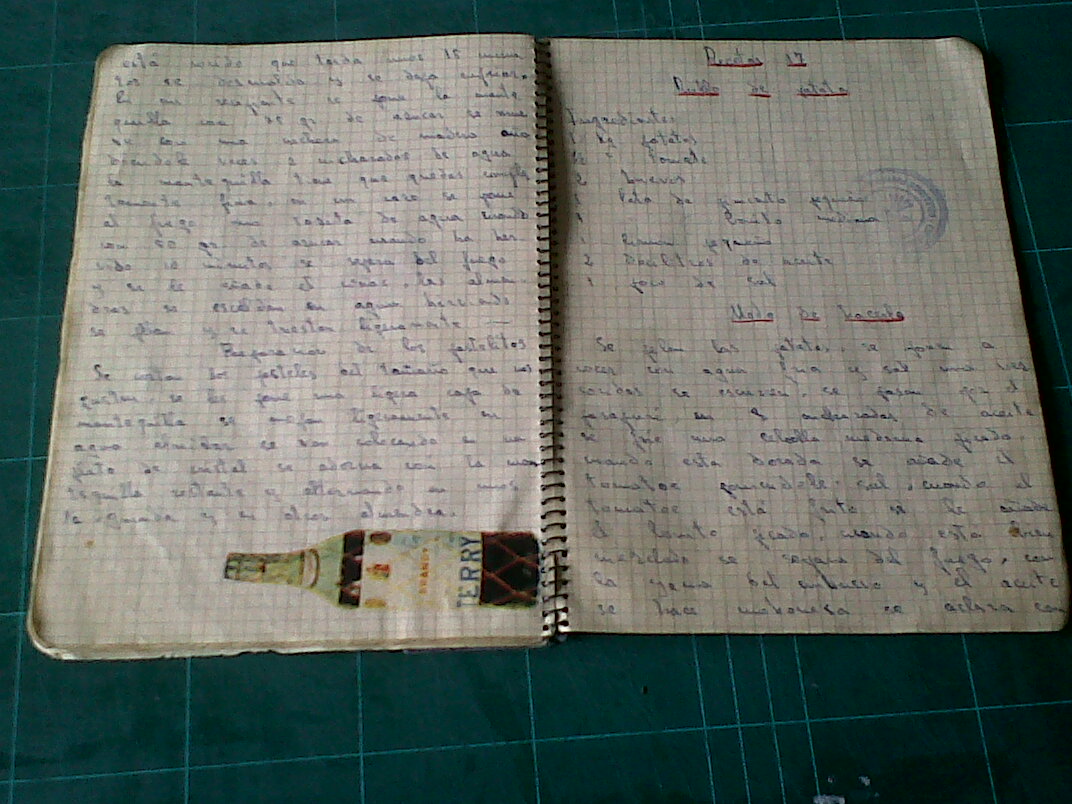 está cocido que tarda unos 15 minu
tos se desmolda y se deja enfriar.
En un recipiente se pone la mante
quilla con 75 gr de azucar se mue
ve con una cuchara de madera aña
diendole veces 2 cucharadas de agua
la mantequilla tiene que quedar comple
tamente fina, en un cazo se pone
al fuego una tacita de agua
con 50 gr. de azucar cuando ha her
vido 10 minutos se separa del fuego
y se le añade el, las almen
dras se escaldan en agua hirviendo
se pelan y se tuestan ligeramente
Preparacion de los pastelitos
Se cortan los pasteles del tamaño que nos
gusten, se les pone una ligera capa de
mantequilla se mojan ligeramente en
se van colocando en un
plato de cristal se adorna con la man
tequilla restante y alternando en unos
la guinda y en otros almendra.
BRANDY
TERRY
Recetas 17
de patata
Ingredientes
1 Kg patatas
1/2 " tomate
2 huevos
1 lata de pimiento pequeña
1 " Bonito mediana
1 limon pequeño
2 Decilitros de aceite
1 poco de sal
Modo de hacerlo
Se pelan las patatas, se ponen a
cocer con agua fria y sal una vez
cocidas se escurren, se pasan por el
pasapuré, en 2 cucharadas de aceite
se frie una cebolla mediana picada,
cuando esta dorada se añade el
tomate poniendole sal, cuando el
tomate está frito se le añade
el bonito picado, cuando está bien
mezclado se separa del fuego, con
la yema del huevo y el aceite
se hace mahonesa se aclara con